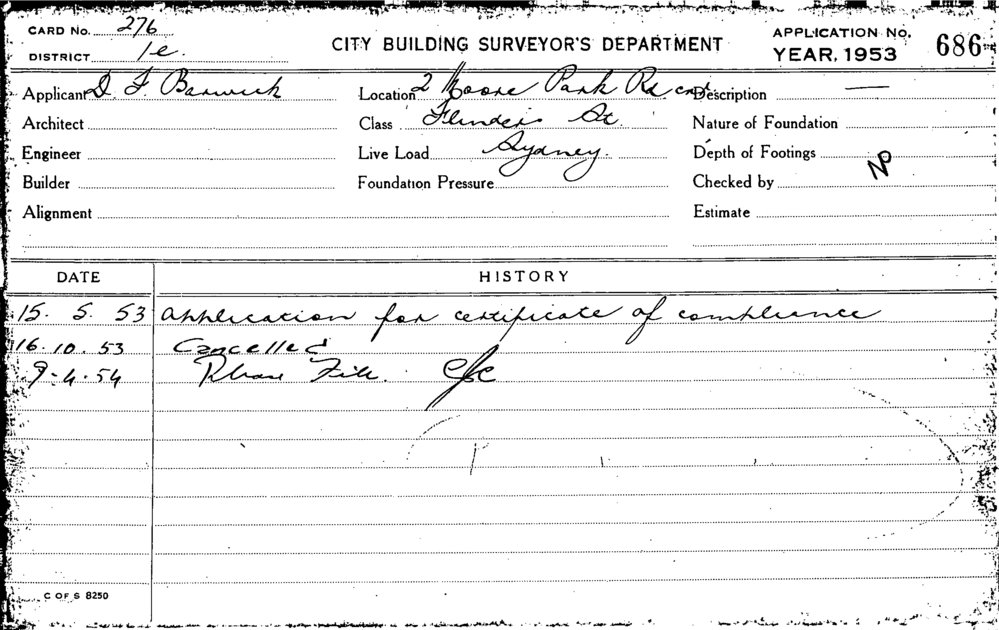 CARD No. 276
DISTRICT 1e.
CITY BUILDING SURVEYOR'S DEPARTMENT
APPLICATION No. 686
YEAR, 1953
Applicant D. F. Barwick
Location 2 Moore Park Rd cnr.
Description —
Architect
Class Flinders St.
Nature of Foundation
Engineer
Live Load Sydney.
Depth of Footings
Builder
Foundation Pressure
Checked by NP
Alignment
Estimate
DATE HISTORY
15. 5. 53 Application for certificate of compliance
16. 10. 53 Cancelled
9. 4. 54 Please File.
C OF S 8250